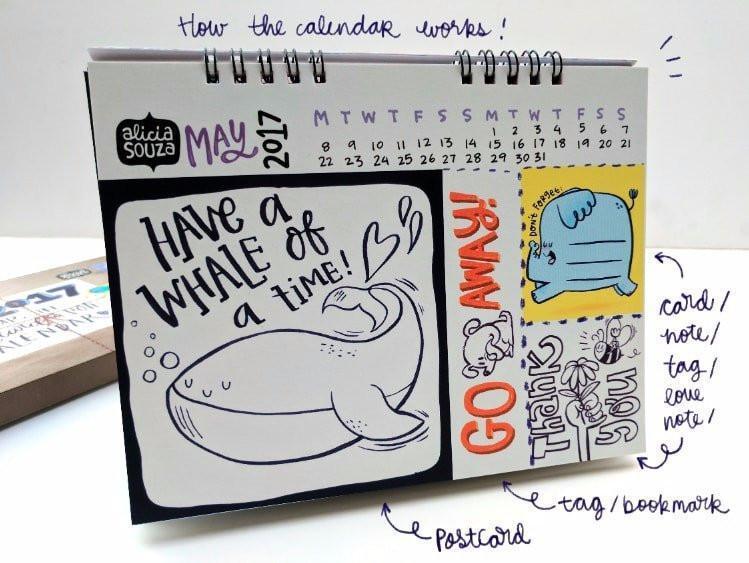 How the calendar works!
alicia
SOUZA
MAY
2017
M T W T F S S M T W T F S S
1 2 3 4 5 6 7
8 9 10 11 12 13 14 15 16 17 18 19 20 21
22 23 24 25 26 27 28 29 30 31
HAVE a
WHALE of
a TIME!
GO AWAY!
DON'T FORGET!
Thank
you
card/
note/
tag/
love
note/
tag/bookmark
postcard
2017